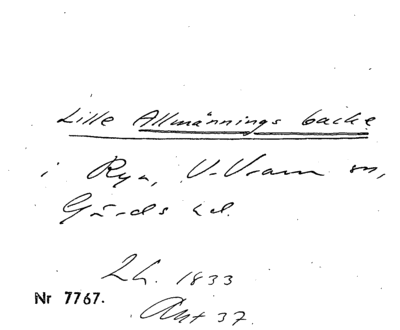 Lille Allmännings backe
i Rya, V. Vram sn,
Gärds hd.
Lh. 1833
Nr 7767.
Ant 37.